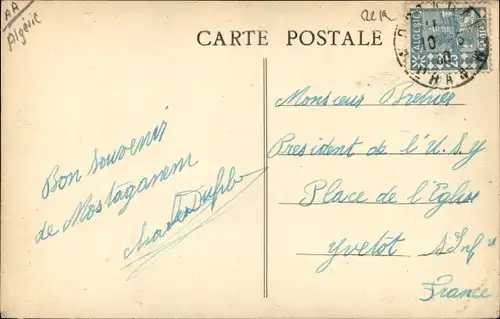 AA
Algérie
CARTE POSTALE
ALGERIE
ORAN
Bon Souvenir
de Mostaganem
Charles
Monsieur Brehier
President de l'U.S.Y
Place de l'Eglise
Yvetot S. Infre
France